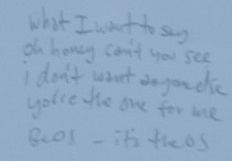 what I want to say
oh honey can't you see
i don't want anyone else
you're the one for me
BeOS - it's the OS